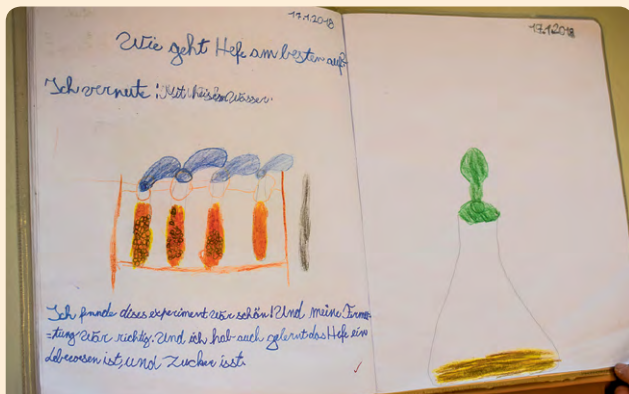 17.1.2018
Wie geht Hefe am besten auf?
Ich vermute: Mit heisem Wasser.
Ich finde dises experiment wär schön! Und meine Fermu-
=tung wär richtig. Und ich hab auch gelernt das Hefe ein
Lebewesen ist, und Zucker isst.
17.1.2018